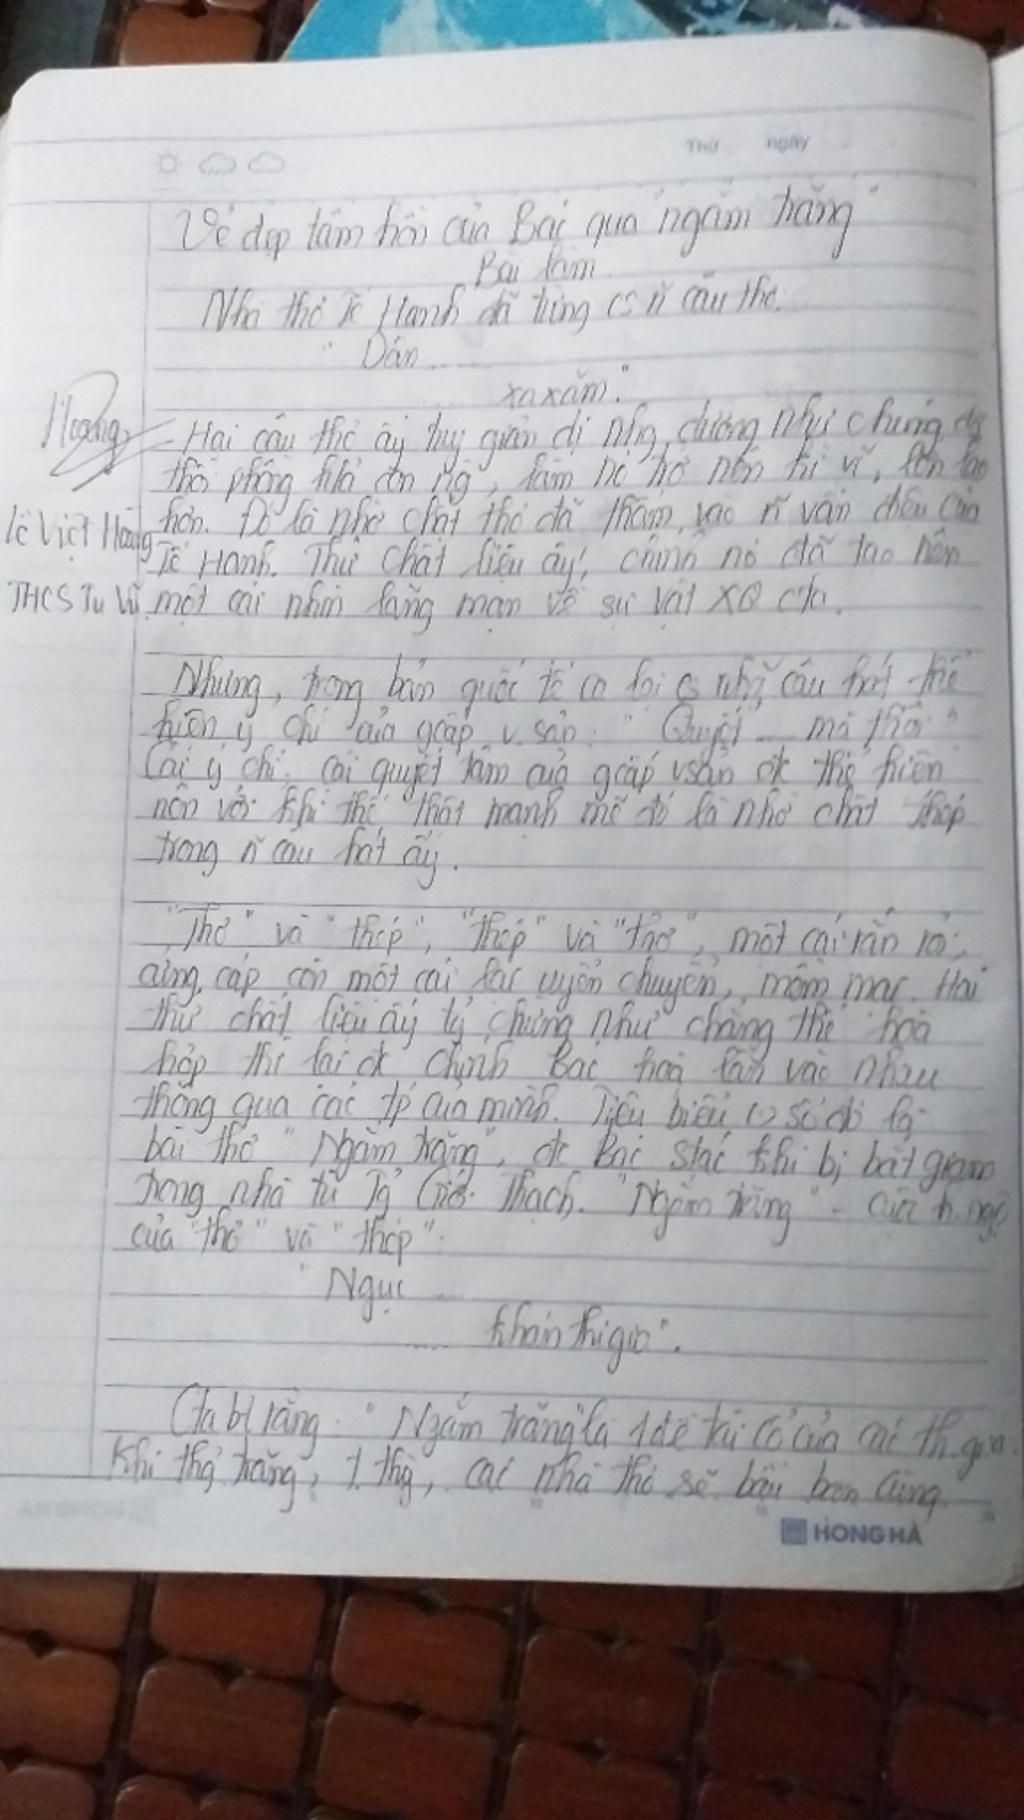 Thứ ngày
Vẻ đẹp tâm hồn của Bác qua "ngắm trăng"
Bài làm
Nhà thơ Tế Hanh đã từng có ~ câu thơ.
"Dán ....
xa xăm."
Hoàng
Hai câu thơ ấy tuy giản dị nhg, dường như chúng đã
thổi phồng lên, làm nó trở nên kì vĩ, lớn lao
Lê Việt Hoàng
hơn. Đó là nhờ chất thơ đã thấm vào ~ vần điệu của
Tế Hanh. Thứ chất liệu ấy, chính nó đã tạo nên
THCS Tu Vũ
một cái nhìn lãng mạn về sự vật XQ cta.
Nhưng, trong bản quốc tế ca lại có câu hát thể
hiện ý chí của gcấp v. sản: "Quyết .... mà thôi"
Cái ý chí, cái quyết tâm của gcấp vsản đc thể hiện
nên với khí thế thật mạnh mẽ đó là nhờ chất thép
trong ~ câu hát ấy.
"Thơ" và "thép", "thép" và "thơ", một cái rắn rỏi,
cứng cáp còn một cái lại uyển chuyển, mềm mại. Hai
thứ chất liệu ấy tg chừng như chẳng thể hoà
hợp thì lại đc chính Bác hoà lẫn vào nhau
thông qua các tp của mình. Tiêu biểu số đó là
bài thơ "Ngắm trăng", đc Bác stác khi bị bắt giam
trong nhà tù Tg Giới Thạch. "Ngắm trăng" - cuộc h.ngộ
của "thơ" và "thép".
"Ngục ....
.... khán thi gia".
Cta bt rằng: "Ngắm trăng" là 1 đề tài cổ của các th. gia.
Khi thg trăng, t. thg, các nhà thơ sẽ bầu bạn cùng
HONG HA